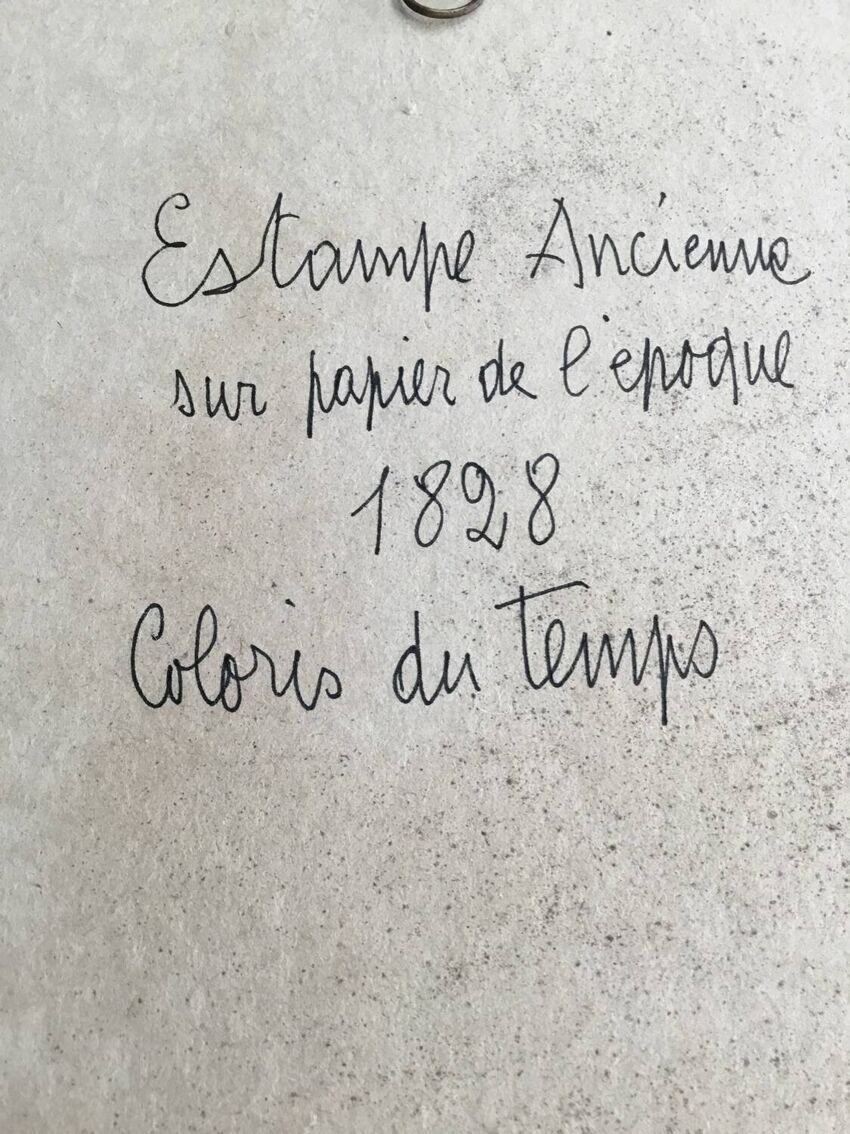 Estampe Ancienne
sur papier de l'époque
1828
Coloris du Temps